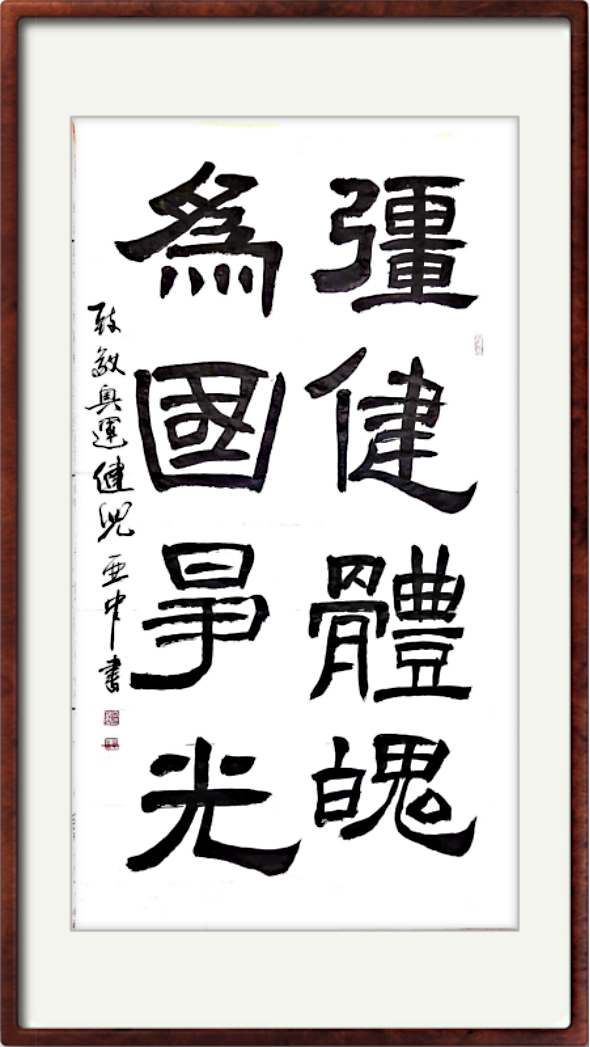 彊健體魄
為國爭光
致敬奥運健兒 亚中書